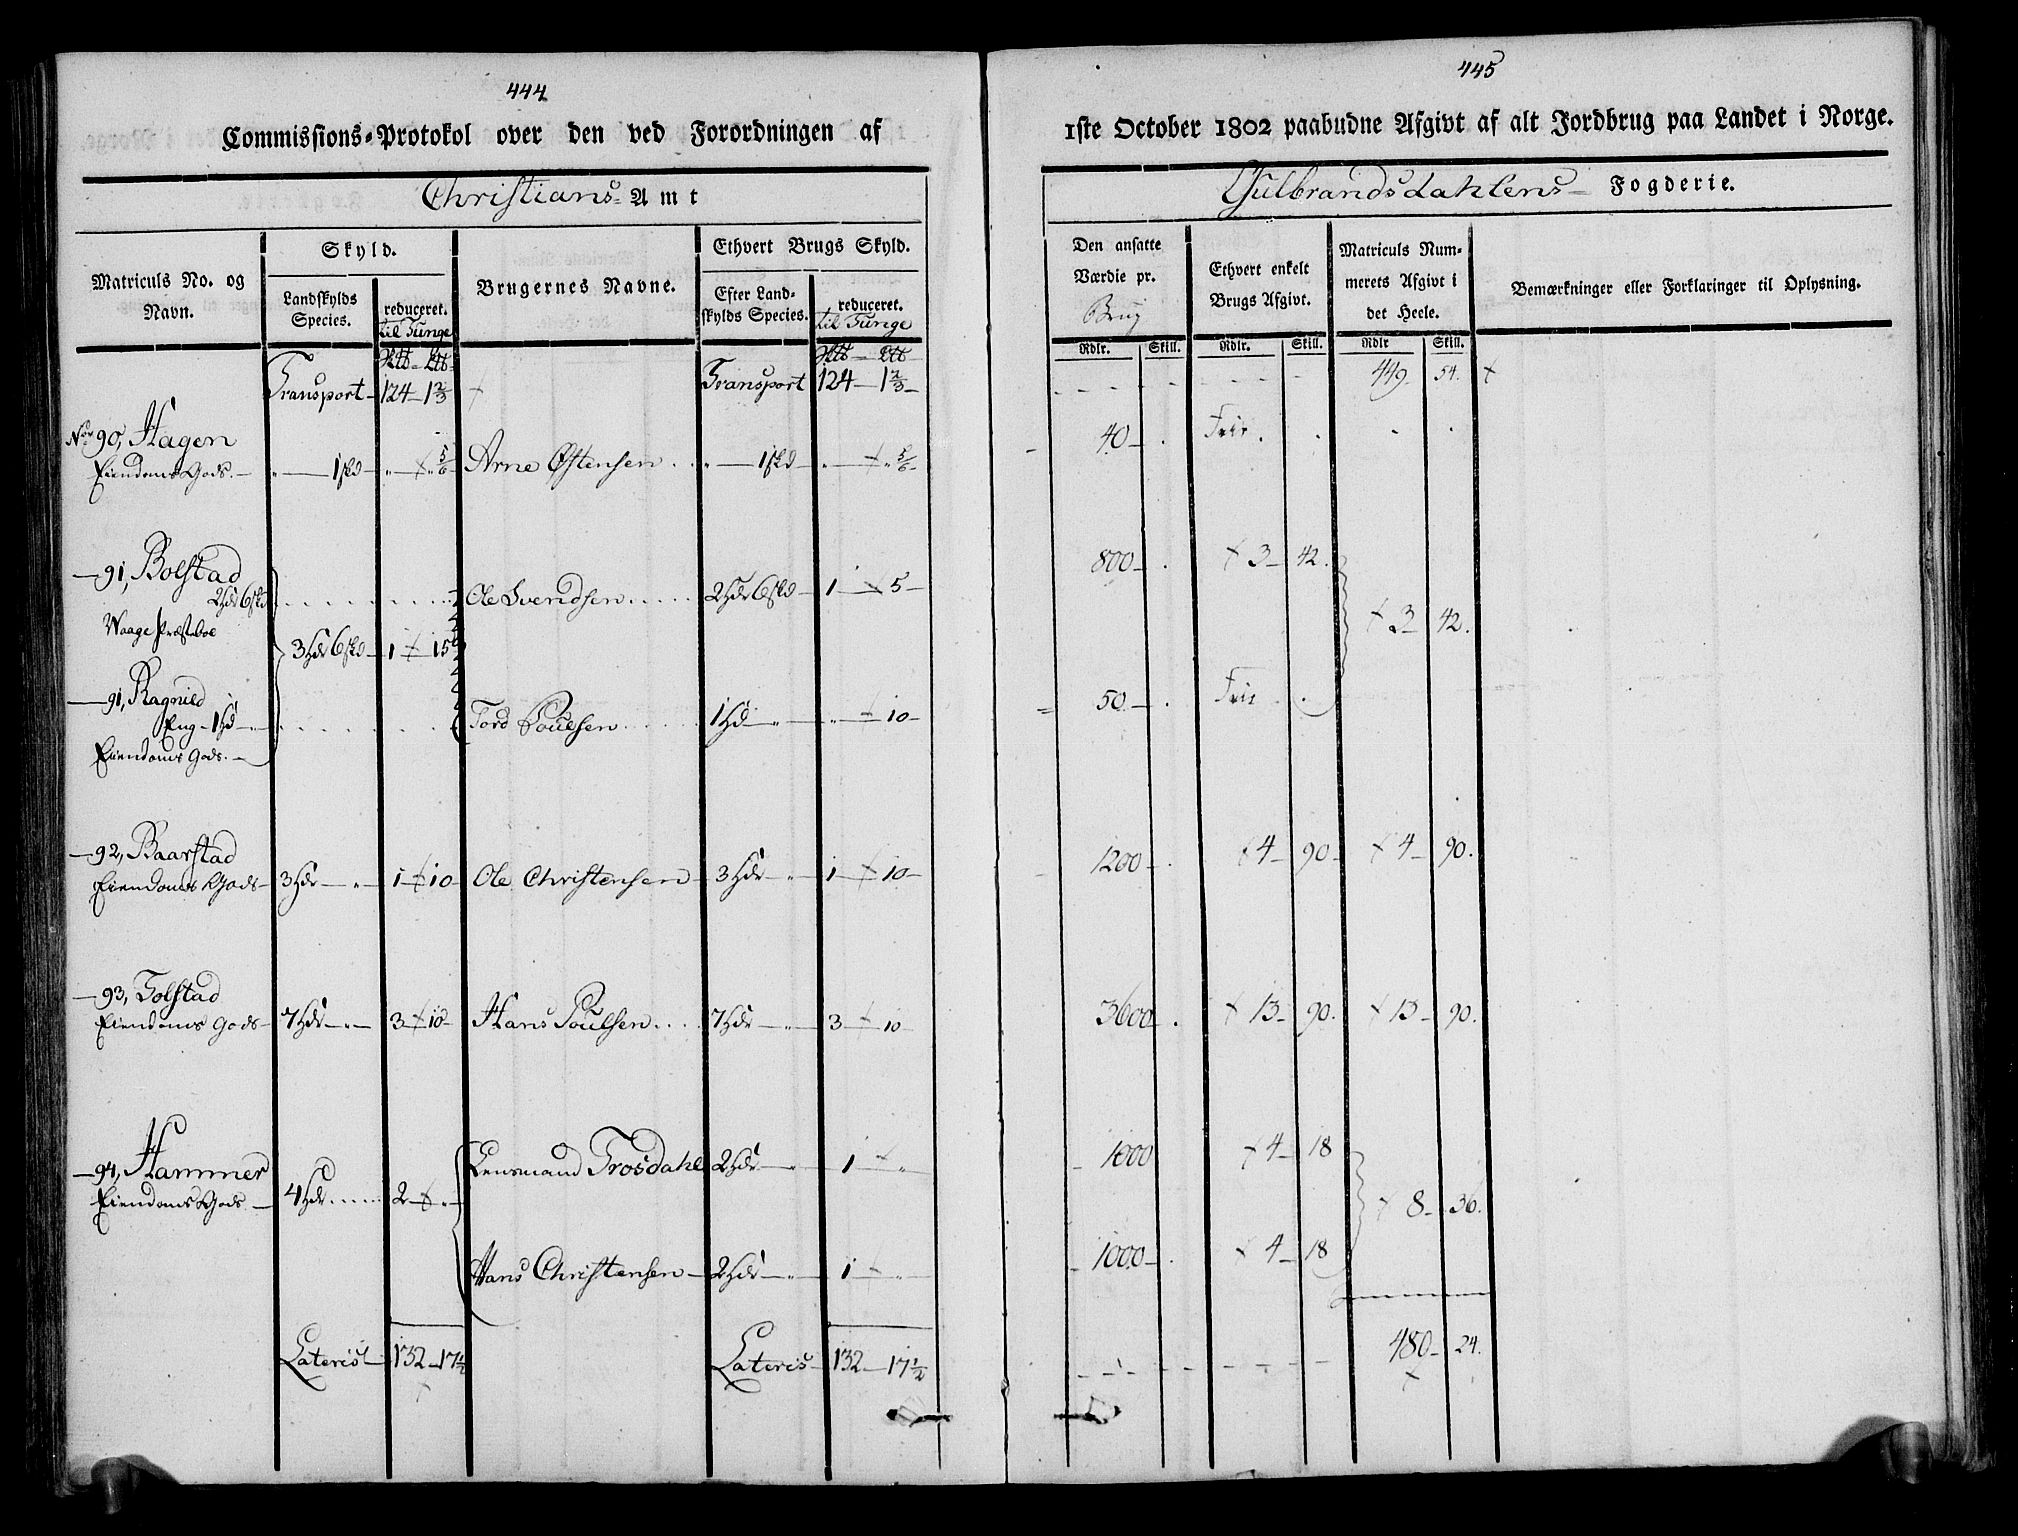 444
Commissions-Protokol over den ved Forordningen af
Christians Amt
Matriculs No. og Navn.
Skyld.
Landskylds Species.
reduceret.
til Tunge
Brugernes Navne.
Ethvert Brugs Skyld.
Efter Landskylds Species.
reduceret.
til Tunge
Transport 124 – 1 2/3 Transport 124 – 1 2/3
No 90, Hagen
Eiendoms Gods. – 1 skd – „ „ 5/6 Arne Østensen 1 skd „ „ 5/6
91, Bolstad
2 Hdr 6 skd Ole Svendsen 2 Hdr 6 skd – 1 – 5
Waage Præsteboe
3 Hdr 6 skd – 1 – 15
91, Ragnild
Eng – 1 Hd Tord Poulsen 1 Hd – „ – 10
Eiendoms Gods.
92, Baarstad
Eiendoms Gods – 3 Hdr – „ 1 – 10 Ole Christensen – 3 Hdr – „ 1 – 10
93, Tolstad
Eiendoms Gods – 7 Hdr – „ 3 – 10 Hans Poulsen 7 Hdr – „ 3 – 10
94, Hammer Lensmand Trosdahl 2 Hdr – „ 1 – „
Eiendoms Gods – 4 Hdr 2 – „
Hans Christensen – 2 Hdr – „ 1 – „
Lateris 132 – 17 1/2 Lateris 132 – 17 1/2
445
1ste October 1802 paabudne Afgivt af alt Jordbrug paa Landet i Norge.
Gulbrandsdahlens Fogderie.
Den ansatte Værdie pr.
Brug
Ethvert enkelt Brugs Afgivt.
Matriculs Nummerets Afgivt i det Heele.
Bemærkninger eller Forklaringer til Oplysning.
Rdlr. Skill. Rdlr. Skill. Rdlr Skill.
449 54.
40 – . Frie .
800 – . 3 – 42.
3 – 42.
50 – . Frie .
1200 – . 4 – 90 – 4 – 90.
3600 – . 13 – 90. 13 – 90.
1000 4 – 18
8 – 36.
1000 – . 4 – 18
480 – 24.